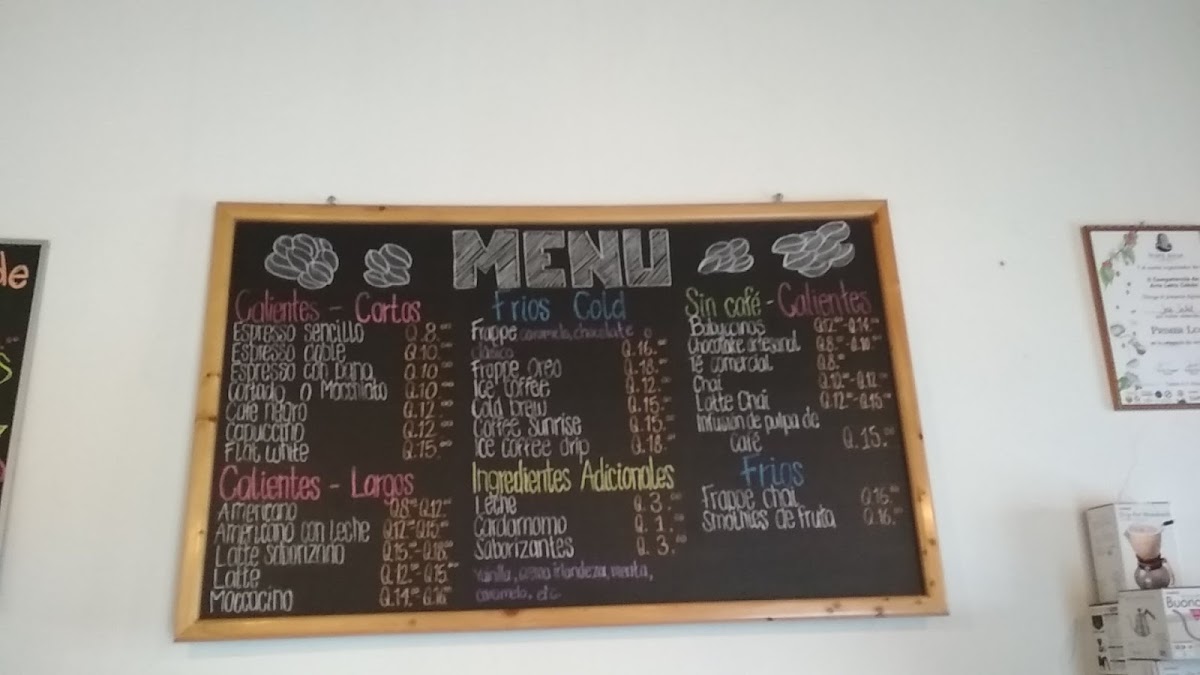 de
MENU
Calientes - Cortos
Espresso sencillo Q.8.00
Espresso doble Q.10.00
Espresso con pana Q.10.00
Cortado o Macchiato Q.10.00
Café negro Q.12.00
Capuccino Q.12.00
Flat white Q.15.00
Calientes - Largos
Americano Q8.00-Q12.00
Americano con Leche Q12.00-Q15.00
Latte saborizado Q.15.00-Q.18.00
Latte Q.12.00-Q.15.00
Moccacino Q.14.00-Q.16.00
Frios Cold
Frappe caramelo, chocolate o
clásico Q.16.00
Frappe Oreo Q.18.00
Ice coffee Q.12.00
Cold brew Q.15.00
Coffee sunrise Q.15.00
Ice coffee drip Q.18.00
Ingredientes Adicionales
Leche Q.3.00
Cardamomo Q.1.00
Saborizantes Q.3.00
Vainilla, crema irlandeza, menta,
caramelo, etc.
Sin café - Calientes
Babyccinos Q12.00-Q14.00
Chocolate artesanal Q.8.00-Q.10.00
Té comercial Q.8.00
Chai Q.10.00-Q.12.00
Latte Chai Q.12.00-Q.15.00
Infusión de pulpa de
café Q.15.00
Frios
Frappe chai Q.16.00
Smothies de fruta Q.16.00
Buono